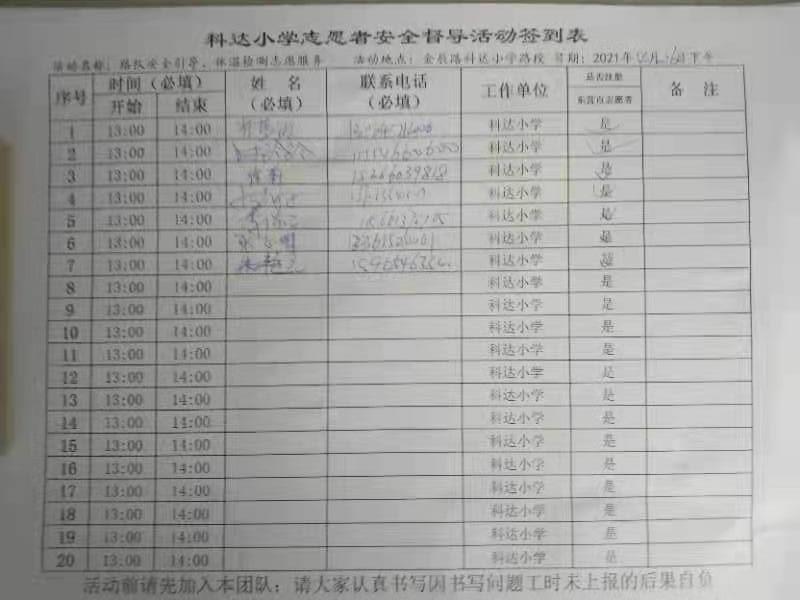 科达小学志愿者安全督导活动签到表
活动名称：路队安全引导、体温检测志愿服务 活动地点：金辰路科达小学路校 日期：2021年 月 日下午
序号 时间（必填） 姓 名（必填） 联系电话（必填） 工作单位 是否注册 备 注
开始 结束 东营市志愿者
1 13:00 14:00 科达小学 是
2 13:00 14:00 科达小学 是
3 13:00 14:00 科达小学 是
4 13:00 14:00 科达小学 是
5 13:00 14:00 科达小学 是
6 13:00 14:00 科达小学 是
7 13:00 14:00 科达小学 是
8 13:00 14:00 科达小学 是
9 13:00 14:00 科达小学 是
10 13:00 14:00 科达小学 是
11 13:00 14:00 科达小学 是
12 13:00 14:00 科达小学 是
13 13:00 14:00 科达小学 是
14 13:00 14:00 科达小学 是
15 13:00 14:00 科达小学 是
16 13:00 14:00 科达小学 是
17 13:00 14:00 科达小学 是
18 13:00 14:00 科达小学 是
19 13:00 14:00 科达小学 是
20 13:00 14:00 科达小学 是
活动前请先加入本团队；请大家认真书写因书写问题工时未上报的后果自负